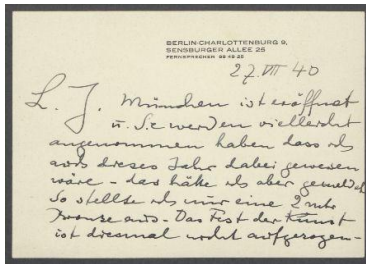 BERLIN-CHARLOTTENBURG 9,
SENSBURGER ALLEE 25
FERNSPRECHER
27 VII 40
L. J. München ist eröffnet
u. Sie werden vielleicht
angenommen haben dass ich
aus dieses Jahr dabei gewesen
wäre – das hätte ich aber gemeldet
So stellte ich nur eine 2 mtr
Bronze aus – Das Fest der Kunst
ist diesmal nicht aufgezogen –